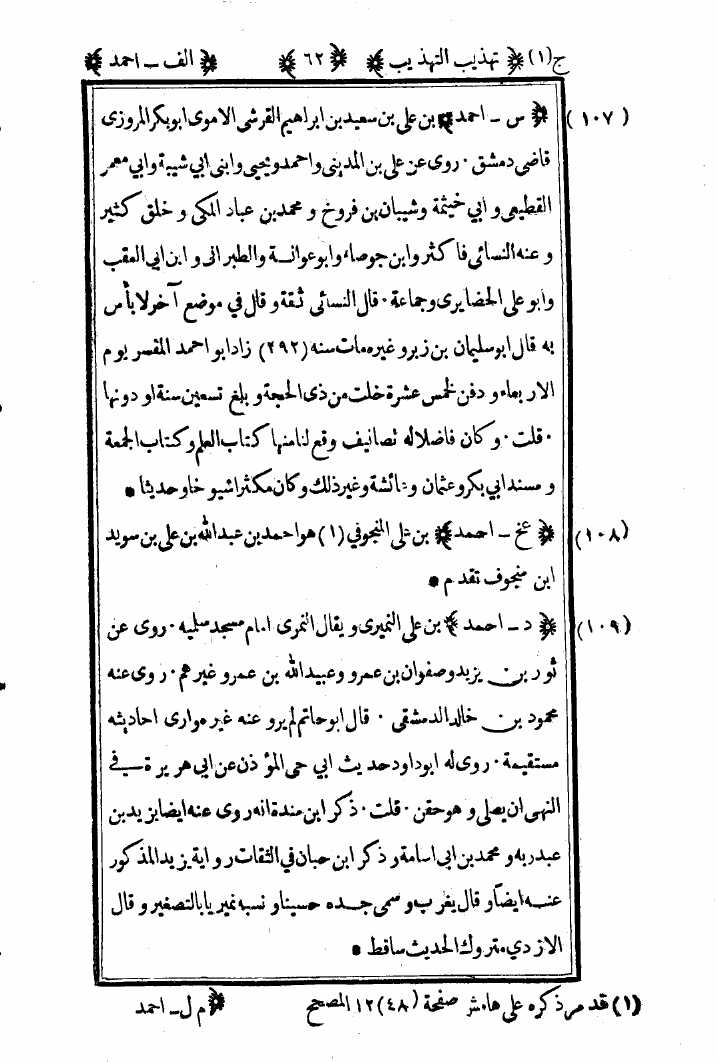 ج (١) ﴿ تهذيب التهذيب ﴾ ﴿ ٦٢ ﴾ ﴿ الف ـ احمد ﴾
(١٠٧) ﴿ س ـ احمد ﴾ بن على بن سعيد بن ابراهيم القرشى الاموى ابو بكر المروزى
قاضى دمشق ٠ روى عن على بن المدينى واحمد ويحيى وابنى ابي شيبة وابي معمر
القطيعى و ابي خيثمة و شيبان بن فروخ و محمد بن عباد المكى و خلق كثير
و عنه النسائى فاكثر وابن جوصاء وابو عوانـة والطبرانى و ابن ابى العقب
وابو على الحضايرى وجماعة ٠ قال النسائى ثقة و قال في موضع آخر لا بأس
به قال ابو سليمان بن زبر و غيره مات سنه (٢٩٢) زاد ابو احمد المفسر يوم
الاربعاء و دفن لخمس عشرة خلت من ذى الحجة و بلغ تسعين سنة او دونها
٠ قلت ٠ و كان فاضلا له تصانيف وقع لنا منها كتاب العلم وكتاب الجمعة
و مسند ابي بكر و عثمان و عائشة وغير ذلك و كان مكثرا شيوخا وحديثا •
(١٠٨) ﴿ عخ ـ احمد ﴾ بن على المنجوفي (١) هو احمد بن عبد الله بن على بن سويد
ابن منجوف تقدم •
(١٠٩) ﴿ د ـ احمد ﴾ بن على النميرى و يقال النمرى امام مسجد سلميه ٠ روى عن
ثور بن يزيد وصفوان بن عمرو وعبيد الله بن عمرو غيرهم ٠ روى عنه
محمود بن خالد الدمشقى ٠ قال ابو حاتم لم يرو عنه غيره وارى احاديثه
مستقيمة ٠ روى له ابو داود حديث ابي حى المؤذن عن ابى هريرة في
النهى ان يصلى و هو حقن ٠ قلت ٠ ذكر ابن مندة انه روى عنه ايضا يزيد بن
عبد ربه و محمد بن ابى اسامة و ذكر ابن حبان في الثقات رواية يزيد المذكور
عنـه ايضاً و قال يغرب و سمى جـده حسينا و نسبه نميريا بالتصغير و قال
الازدي متروك الحديث ساقط •
(١) قد مر ذكره على هامش صفحة (٤٨) ١٢ المصحح ﴿ م ل ـ احمد